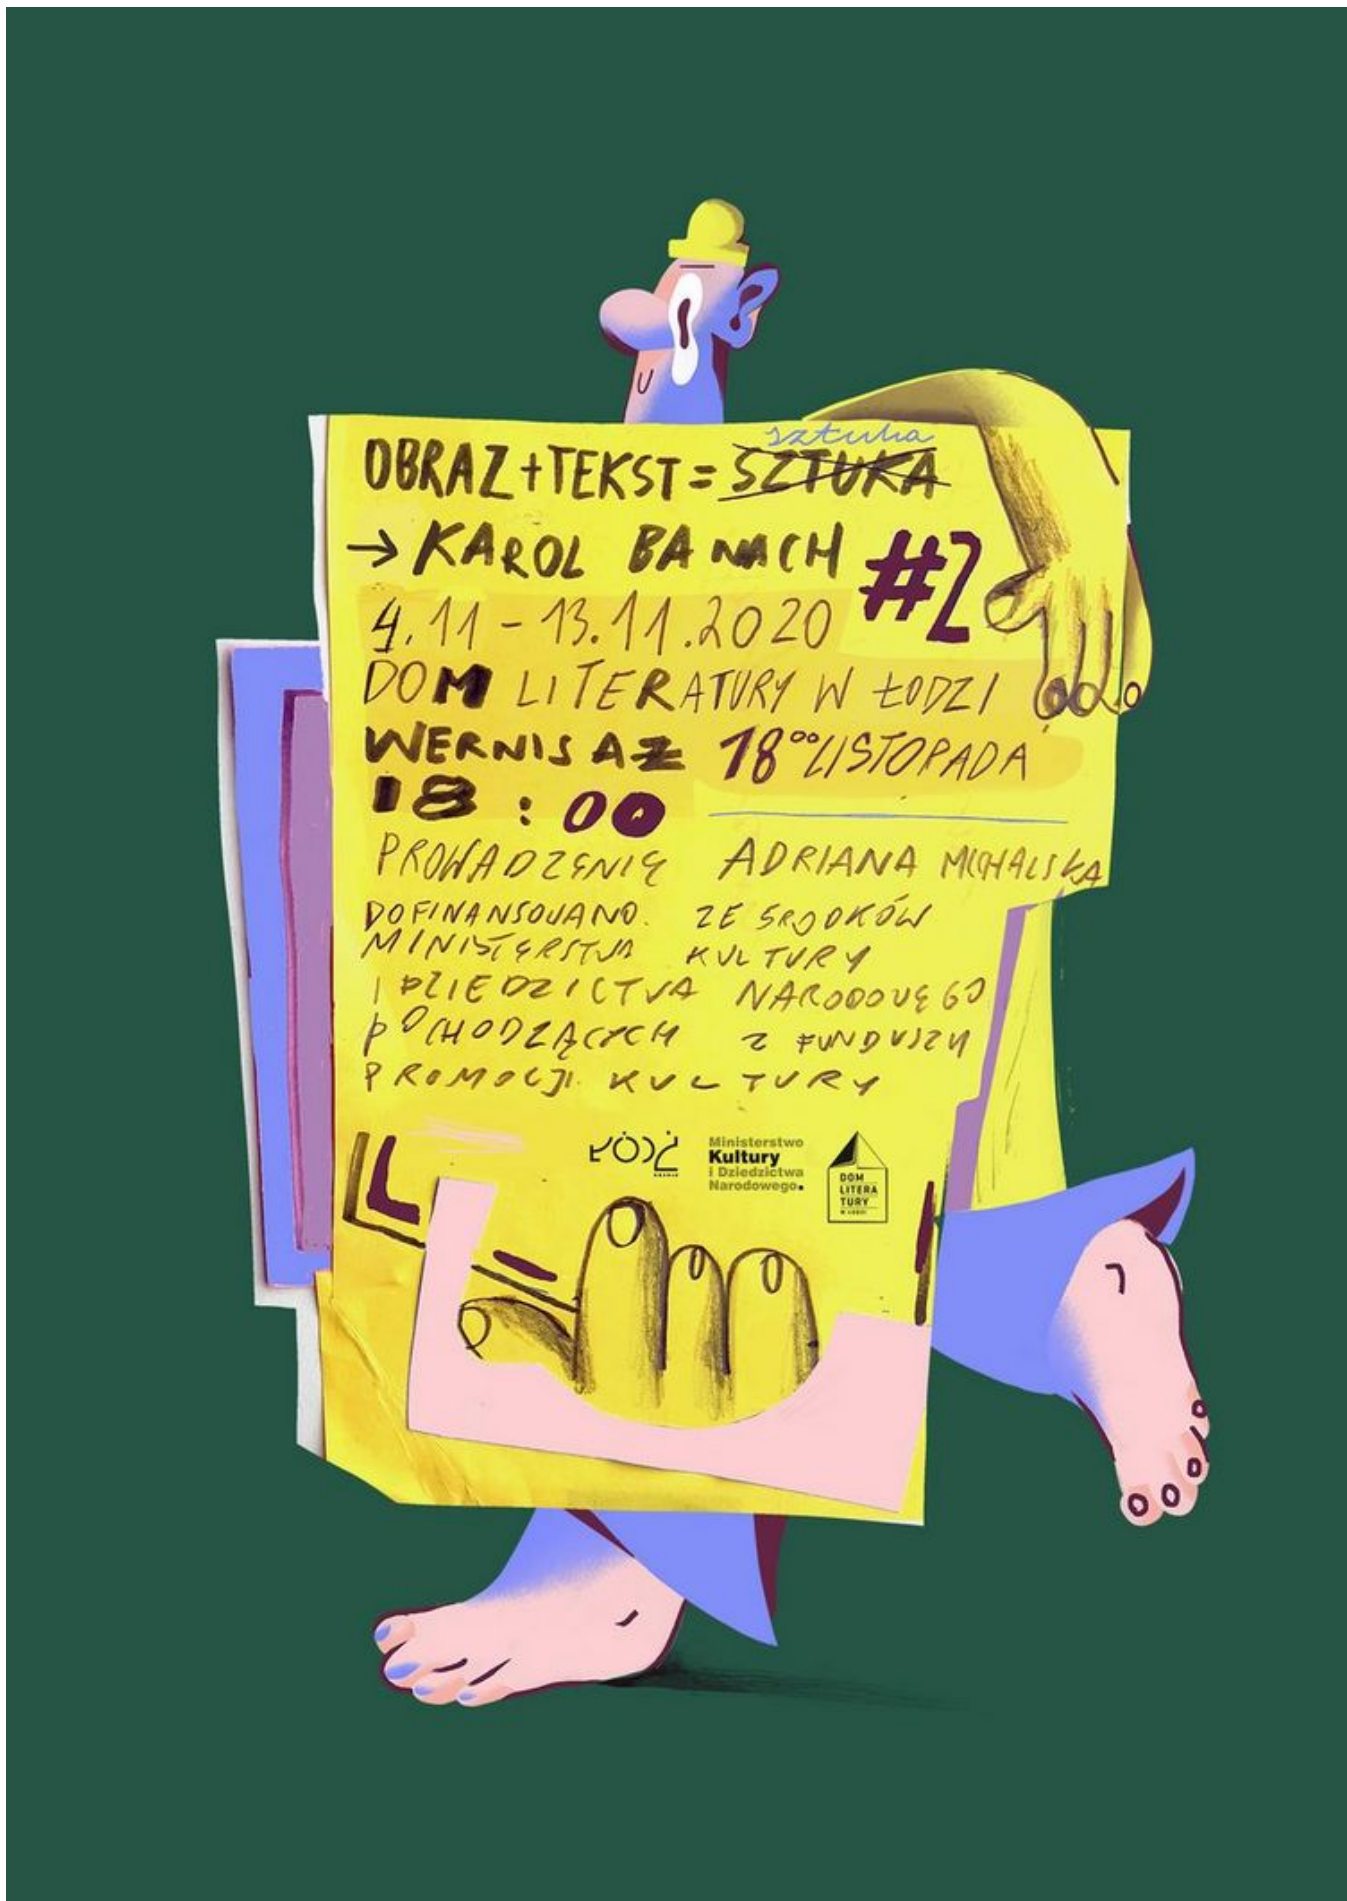 sztuka
OBRAZ+TEKST=SZTUKA
→ KAROL BANACH #2
4.11-13.11.2020
DOM LITERATURY W ŁODZI
WERNISAŻ 18⁰⁰ LISTOPADA
18:00
PROWADZENIE ADRIANA MICHALSKA
DOFINANSOWANO. ZE ŚRODKÓW
MINISTERSTWA KULTURY
I DZIEDZICTWA NARODOWEGO
POCHODZĄCYCH Z FUNDUSZU
PROMOCJI KULTURY
ŁÓDŹ
Ministerstwo
Kultury
i Dziedzictwa
Narodowego.
DOM
LITERA
TURY
W ŁODZI